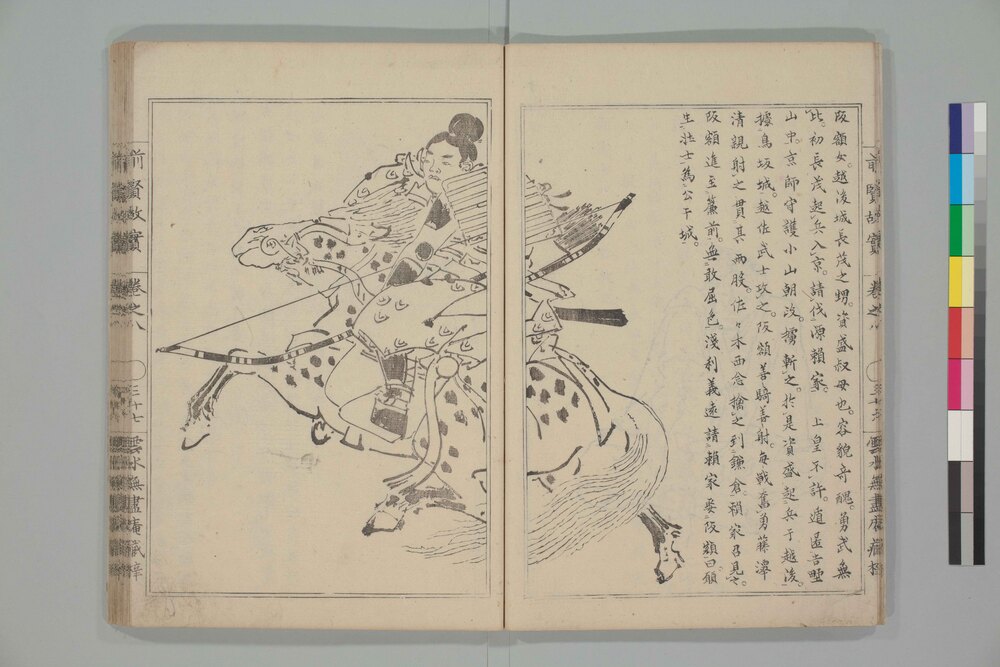 阪額女。越後城長茂之甥。資盛叔母也。容貌奇醜。勇武無
比。初長茂起兵入京。請伐源賴家。 上皇不許遁匿吉野
山中。京師守護小山朝政。擒斬之。於是資盛起兵于越後。
據鳥坂城。越佐武士攻之。阪額善騎善射。每戰奮勇藤澤
清親射之貫其兩股。佐々木西念擒之到鎌倉。賴家召見之。
阪額進至簾前。無敢屈色。淺利義遠請賴家娶阪額曰願
生壯士爲公干城。
前賢故實
卷之八
三十七
雲水無盡庵藏梓
前賢故實
卷之八
雲水無盡庵藏梓